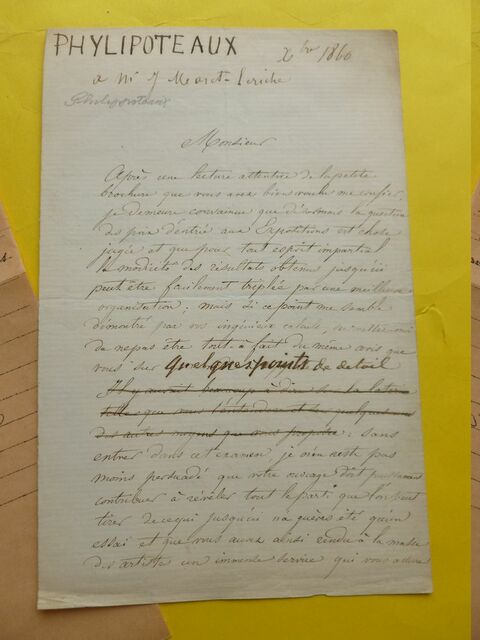 PHYLIPOTEAUX
Xbre 1860
a Mr J Maret-Leriche
Philippoteaux
Monsieur
Après une lecture attentive de la petite
brochure que vous avez bien voulu me confier,
je demeure convaincu que désormais la question
des prix d'entrée aux Expositions est chose
jugée et que pour tout esprit impartial
la modicité des résultats obtenus jusqu'ici
peut être facilement triplée par une meilleure
organisation; mais si ce point me semble
démontré par vos ingénieux calculs,
de ne pas être tout-à-fait du même avis que
vous sur quelques points de détail
Il y aurait beaucoup à dire sur la loterie
telle que vous l'entendez et sur quelques uns
des autres moyens que vous proposez: sans
entrer dans cet examen, je n'en reste pas
moins persuadé que votre ouvrage doit puissamment
contribuer à révéler tout le parti que l'on peut
tirer de ce qui jusqu'ici n'a guères été qu'un
essai et que vous aurez ainsi rendu à la masse
des artistes un immense service qui vous